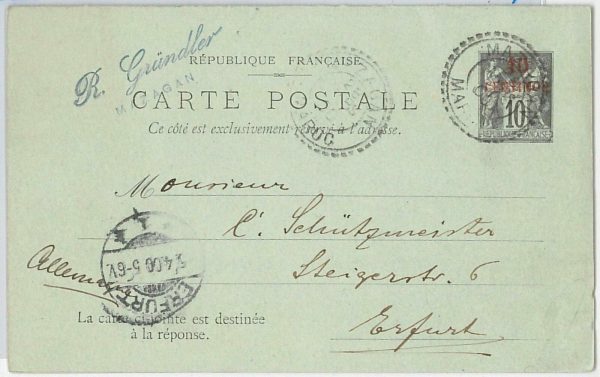 R. Gründler
MAZAGAN
RÉPUBLIQUE FRANÇAISE
CARTE POSTALE
Ce côté est exclusivement réservé à l'adresse.
MAROC
10
CENTIMOS
10
RÉPUBLIQUE FRANÇAISE
Monsieur
C. Schützmeister
Steigerstr. 6
Erfurt
Allemagne
ERFURT
5-6V.
La carte ci-jointe est destinée
à la réponse.